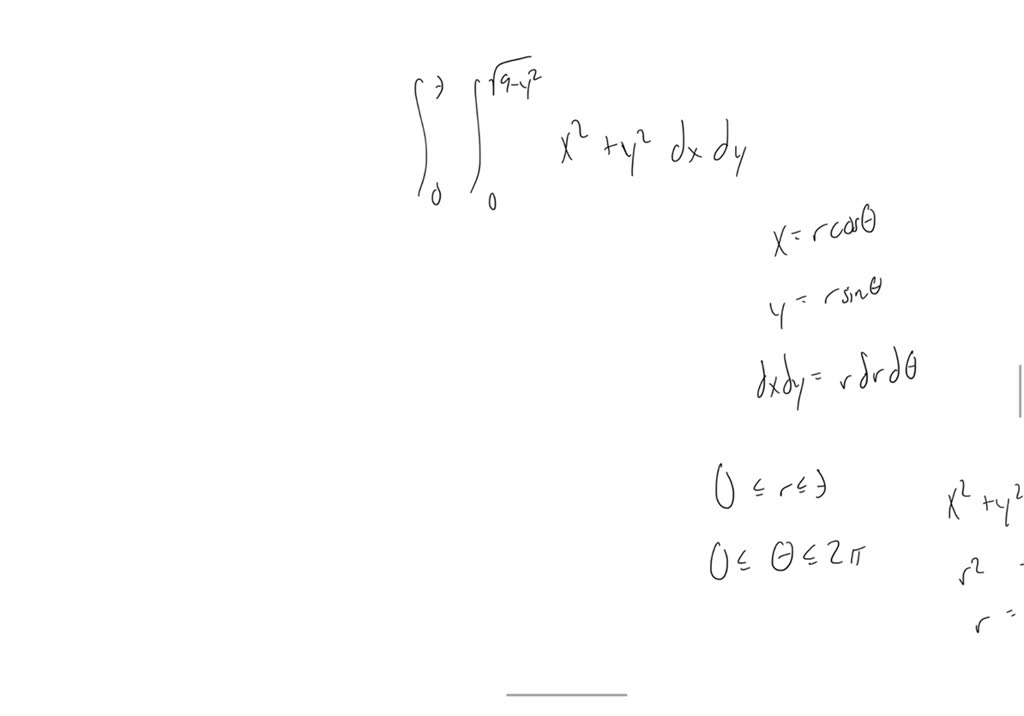 ∫₀³ ∫₀^√(9-y²) x² + y² dx dy
x = r cosθ
y = r sinθ
dxdy = r dr dθ
0 ≤ r ≤ 3
0 ≤ θ ≤ 2π
x² + y²
r²
r =